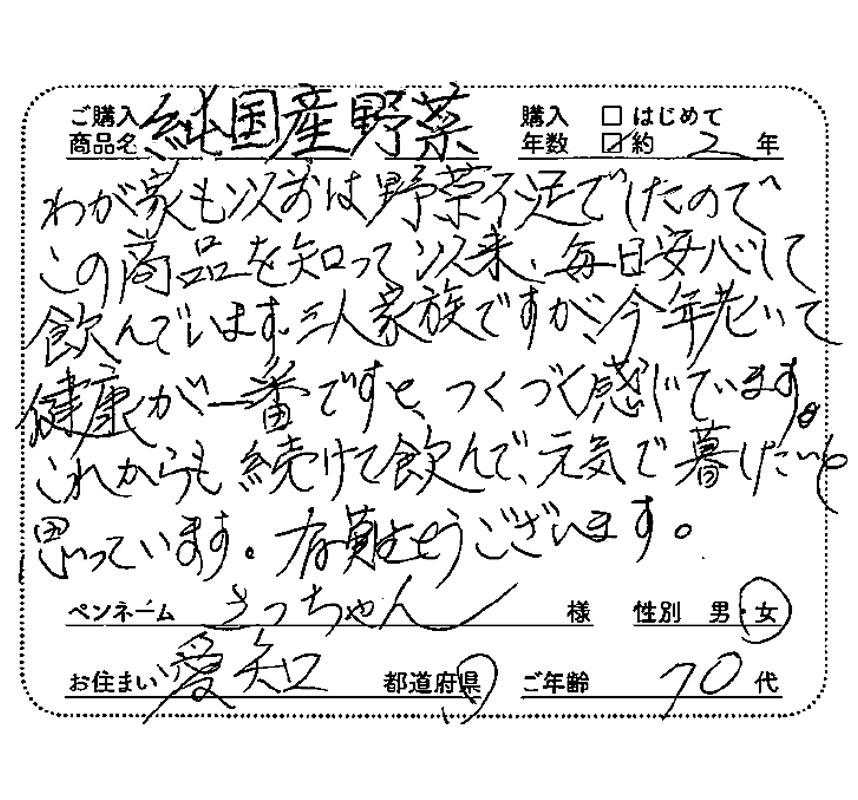 ご購入商品名 純国産野菜 購入年数 □はじめて ☑約 2 年
わが家も以前は野菜不足でしたので
この商品を知って以来、毎日安心して
飲んでいます。三人家族ですが、今年老いて
健康が一番ですと、つくづく感じています。
これからも続けて飲んで、元気で暮したいと
思っています。有難とうございます。
ペンネーム さっちゃん 様 性別 男・女
お住まい 愛知 都道府県 ご年齢 70 代